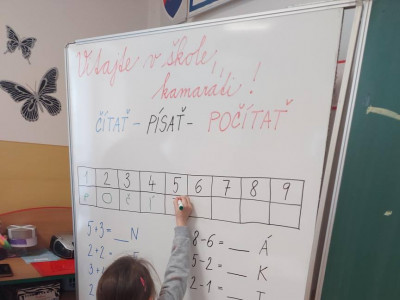 Vitajte v škole,
kamaráti!
ČÍTAŤ - PÍSAŤ - POČÍTAŤ
1 2 3 4 5 6 7 8 9
P O Č Í
5+3=__N
2+2=
3+
8-6=__Á
5-2=__K
2-1=__T